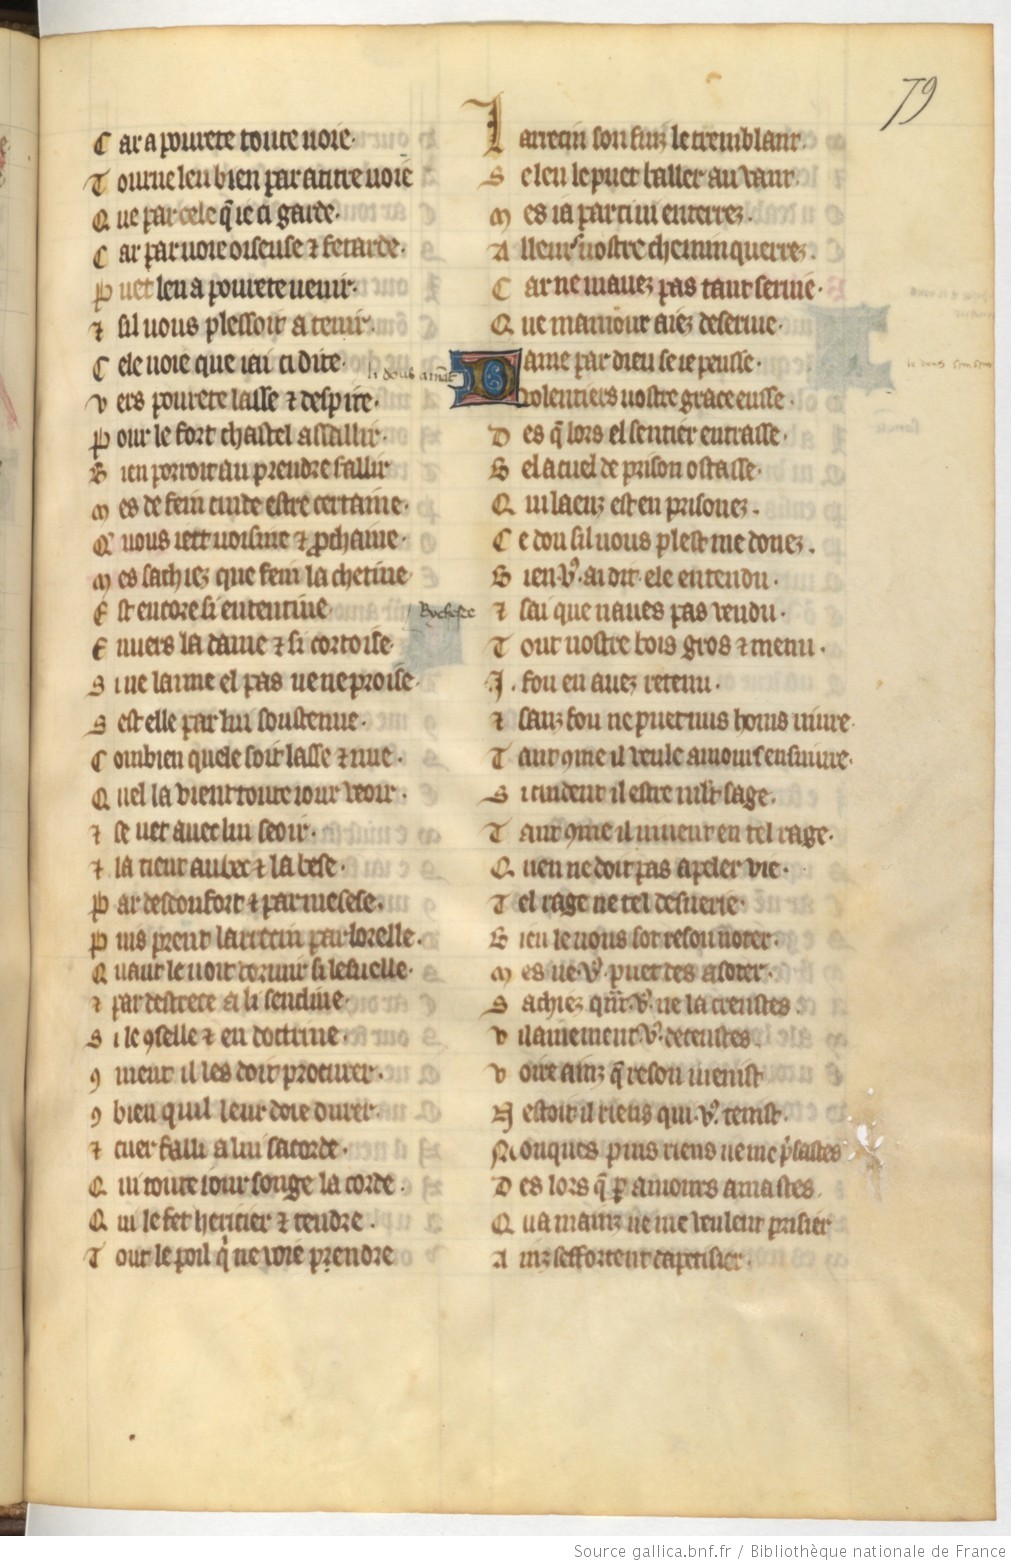 79
C ar a pourete toute uoie·
T ourne leu bien par autre uoie
Q ue par cele q̃ ie ci garde·
C ar par uoie oiseuse ⁊ fetarde·
P uet leu a pourete uenir·
⁊ sil uous plessoit a tenir·
C ele uoie que iai ci dite·
V ers pourete lasse ⁊ despite·
P our le fort chastel assaillir·
B ien porroit au prendre fallir
M es de fein cuide estre certaine·
Q̃ uous iert uoisine ⁊ ꝓchaine·
M es sachiez que fein la chetiue
E st encore si ententiue
E nuers la dame ⁊ si cortoise
S i ne laime el pas ne ne proise·
S est elle par lui soustenue·
C ombien quele soit lasse ⁊ nue·
Q uel la vient toute iour veoir·
⁊ se uet auec lui seoir·
⁊ la tient au bec ⁊ la bese·
P ar desconfort ⁊ par mesese·
P uis prent larrecin par lorelle·
Q uant le uoit dormir si lesuelle·
⁊ par destrece a li sencline·
S i le ꝯselle ⁊ en doctrine·
ꝯ ment il les doit procurer·
ꝯ bien quil leur doie durer·
⁊ cuer falli a lui sacorde·
Q ui toute iour songe la corde·
Q ui le fet hericier ⁊ tendre·
T out le poil q̃ ne voie prendre
L arrecin son fuiz le tremblant·
S e leu le puet baller au vant·
M es ia par ci ni enterrez·
A lleurs uostre chemin querrez·
C ar ne mauez pas tant serui e·
Q ue mamour aiez deseruie·
si dous amāt
D ame par dieu se ie peusse·
volentiers uostre grace eusse·
D es q̃ lors el sentier entrasse·
B el acuel de prison ostasse·
Q ui laeuz est en prisonez·
C e don sil uous plest me donez·
Richesce
B ien vꝰ ai dit ele entendu·
⁊ sai que naues pas vendu·
T out uostre bois gros ⁊ menu·
J· fou en auez retenu·
⁊ sanz fou ne puet nus homs uiure·
T ant ꝯme il veule amours ensuiure·
S i cuident il estre mlt̃ sage·
T ant ꝯme il uiuent en tel rage·
Q uen ne doit pas apeler vie·
T el rage ne tel desuerie·
B ien le uous sot reson noter·
M es ne vꝰ puet des asoter·
S achiez qñt vꝰ ne la creustes·
V ilainement vꝰ deceustes·
V oire ainz q̃ reson i uenist
N estoit il riens qui vꝰ tenist·
N onques puis riens ne me p̃sastes
D es lors q̃ ꝑ amours amastes
Q ua mainz ne me veulent prisier
A inz sefforcent capetisier·
Source gallica.bnf.fr / Bibliothèque nationale de France